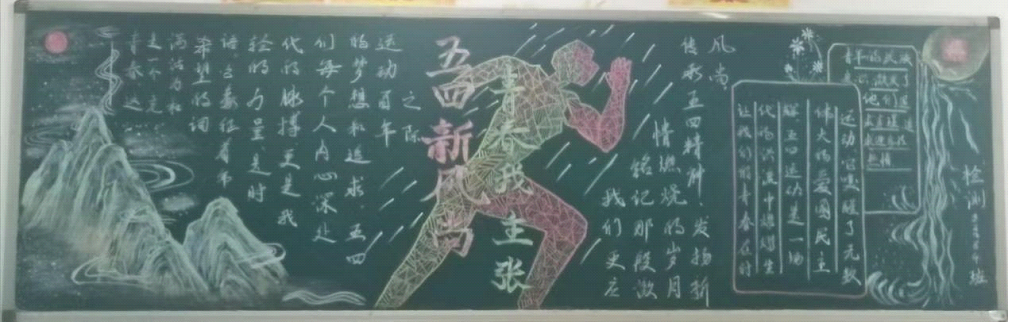 青春这
是一个充
满活力和
希望的词
语它象征着年
轻的力量是时
代的脉搏更是我
们每个人内心深处
的梦想和追求五四
运动百年
之际
五四新风尚
青春我主张
我们更应
铭记那段激
情燃烧的岁月
传承五四精神！发扬新
风尚
让我们的青春在时
代的洪流中熠熠生
辉五四运动是一场
伟大的爱国民主
运动它唤醒了无数
青年的民族
热情
检测
班